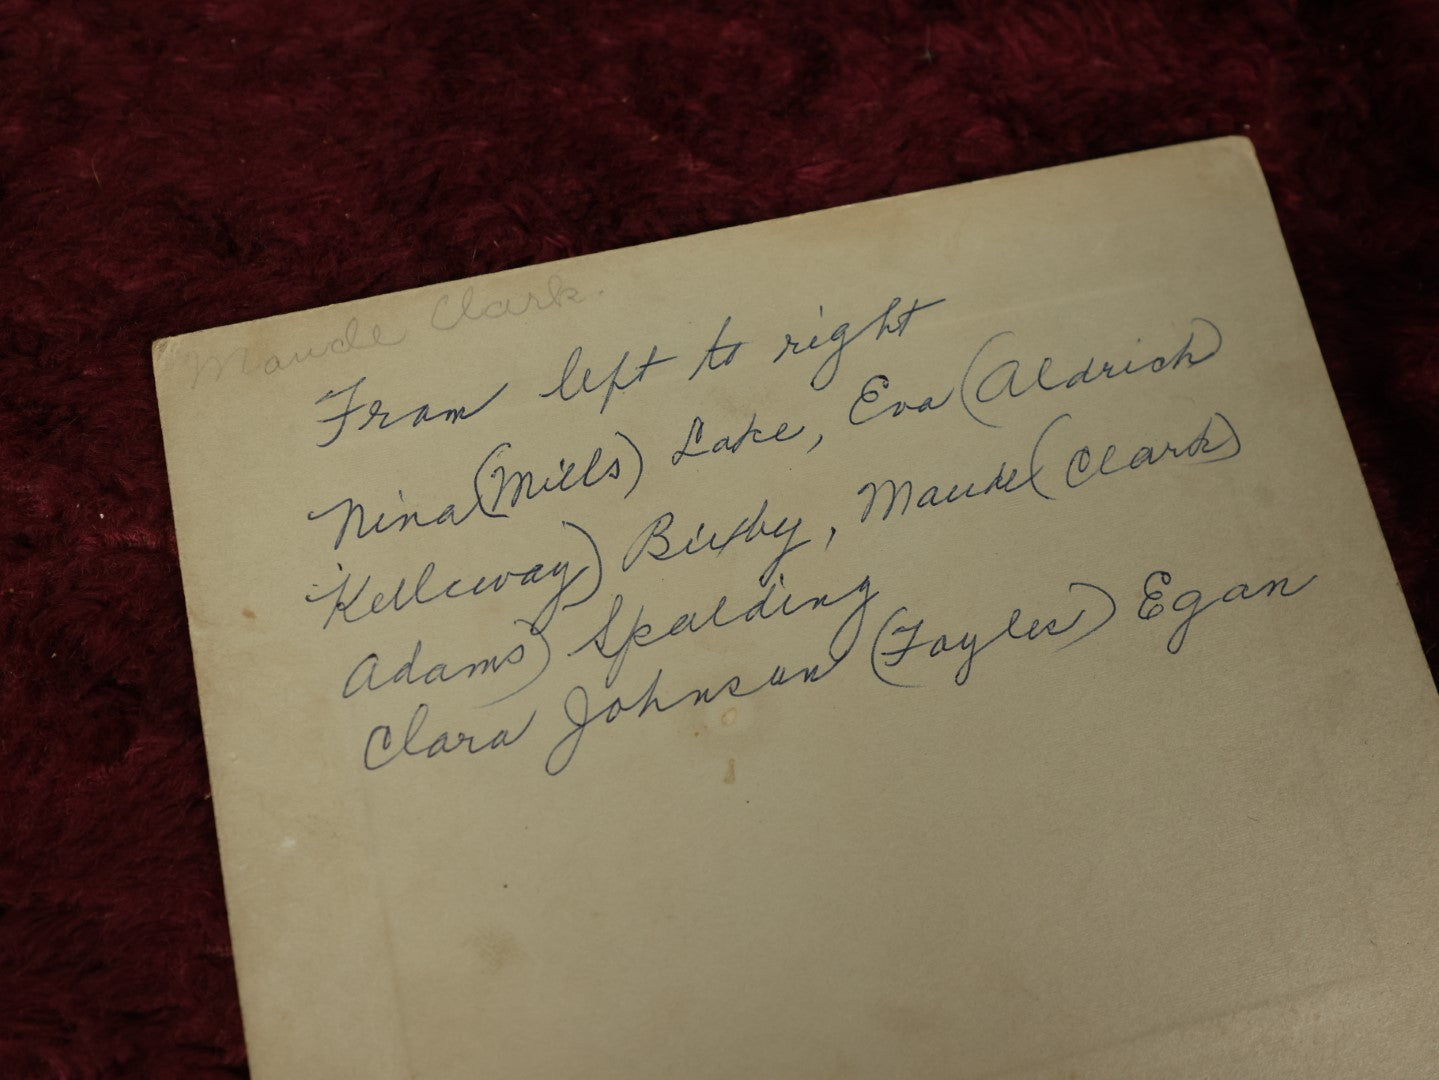 Maude Clark.
From left to right
Nina (Mills) Lake, Eva (Aldrich
Kelleway) Bixby, Maude (Clark
Adams) Spalding
Clara Johnson (Foyles) Egan